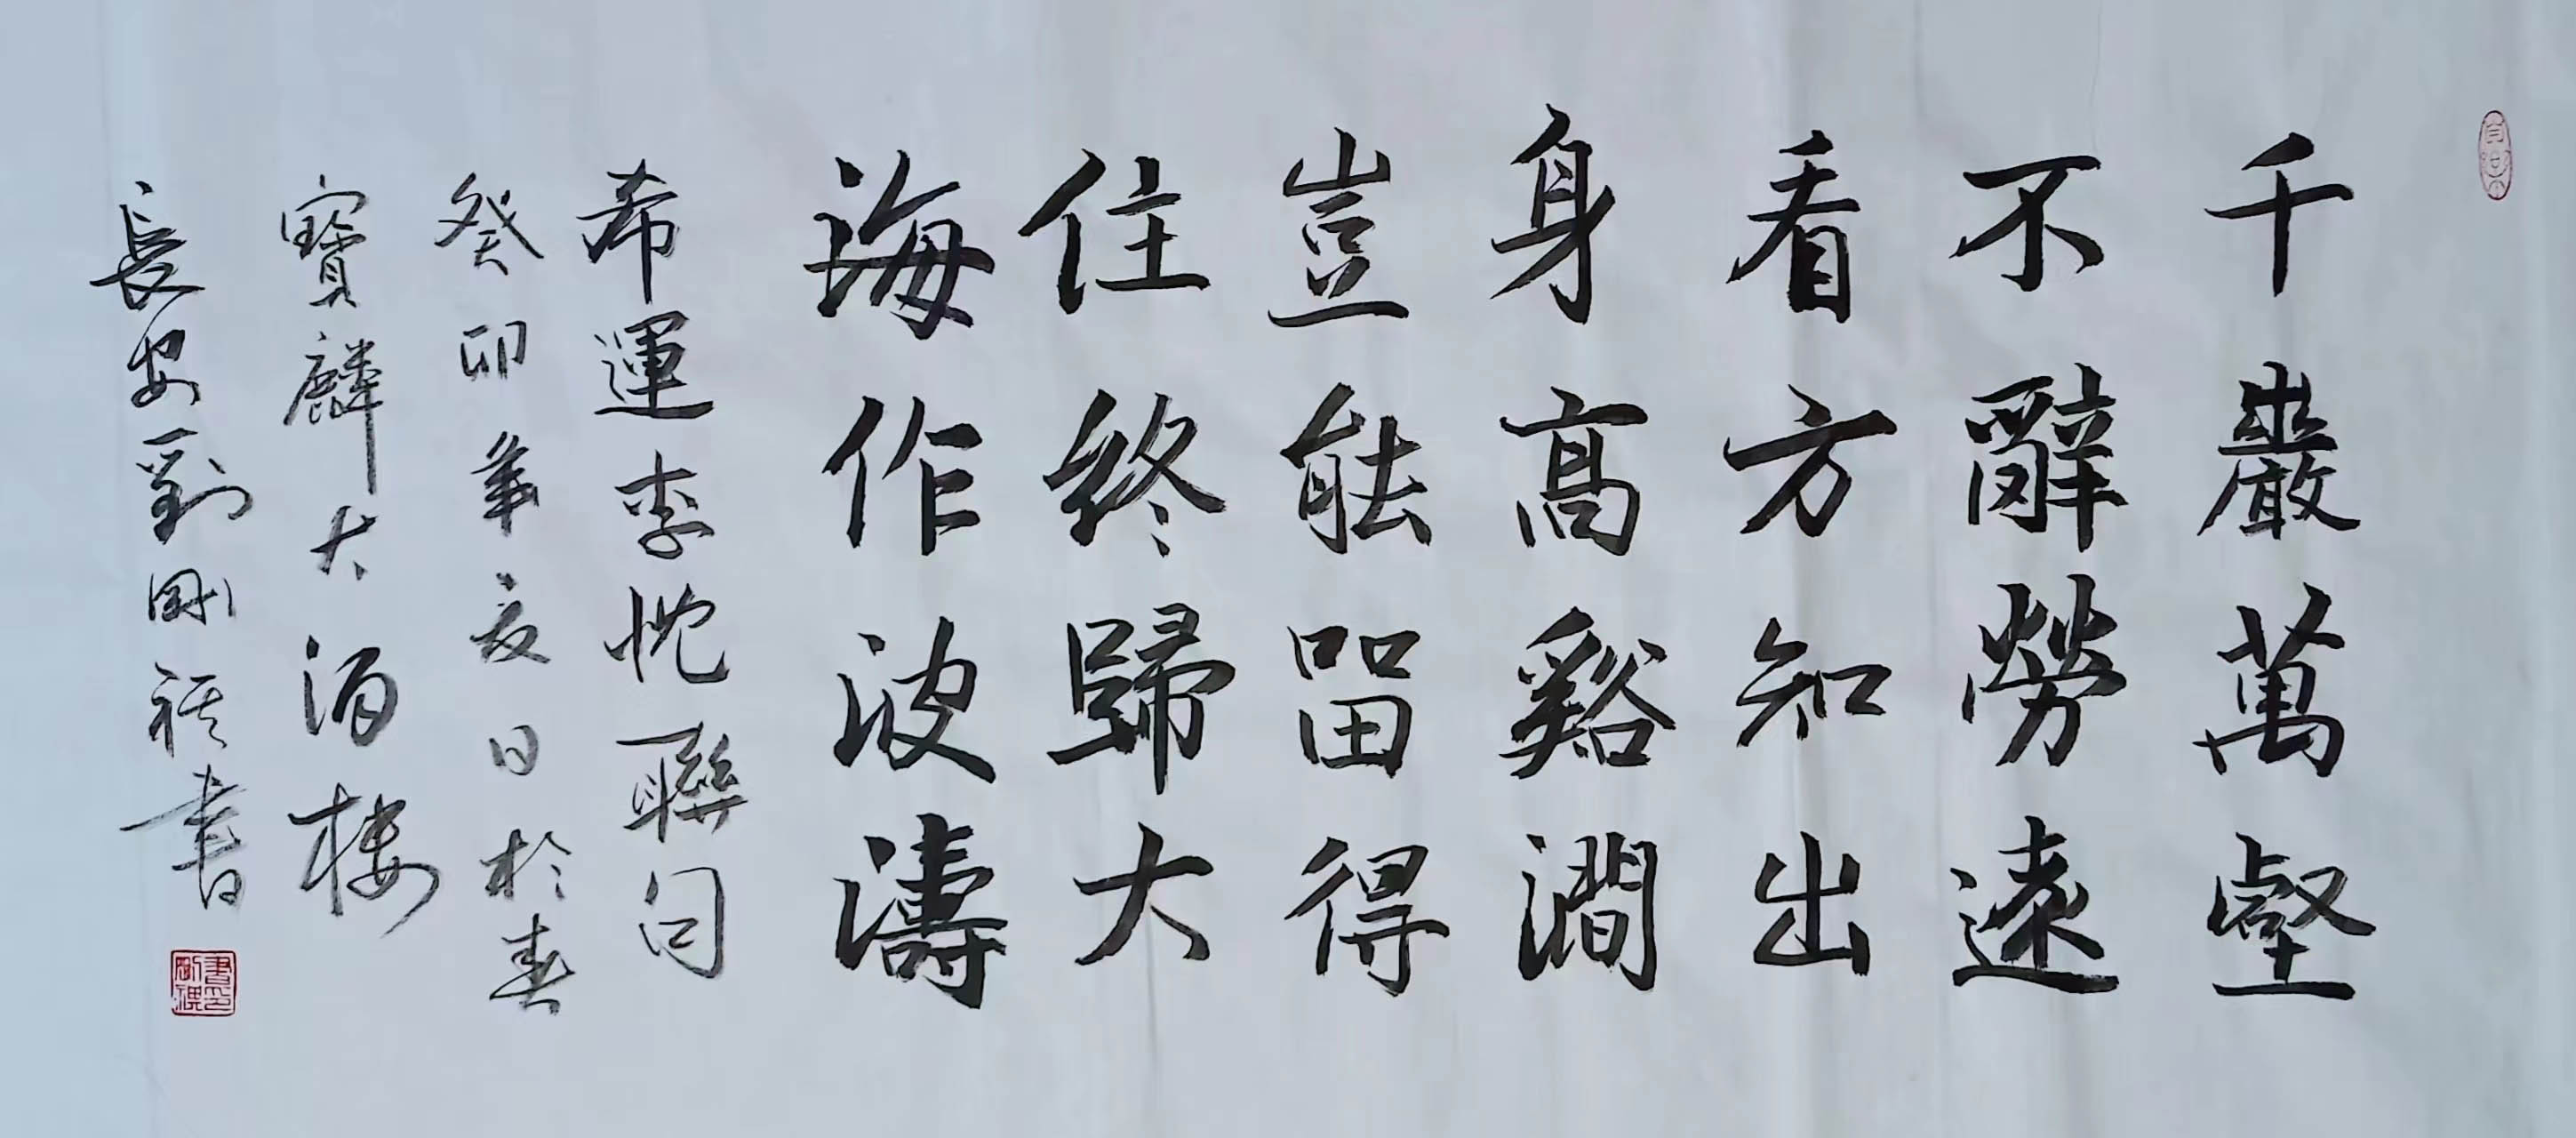 千巖萬壑
不辭勞遠
看方知出
身高谿澗
豈能留得
住終歸大
海作波濤
希運李忱聯句
癸卯年夏日於秦
寶麟大酒樓
長安劉剛禩書